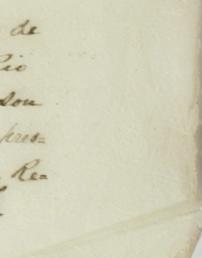 de
Rio
son
pres=
Re=